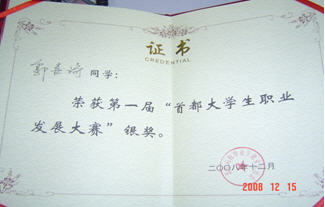 证书
CREDENTIAL
同学：
荣获第一届“首都大学生职业
发展大赛”银奖。
二〇〇八年十二月
2008 12 15